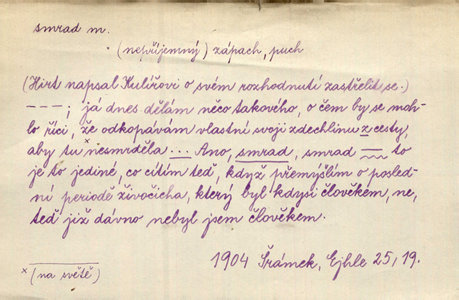 smrad m.
(nepříjemný) zápach, puch
(Hirt napsal Kulířovi o svém rozhodnutí zastřelit se.)
– – – ; já dnes dělám něco takového, o čem by se moh-
lo říci, že odkopávám vlastní svoji zdechlinu z cesty,
aby tu ˣnesmrděla ... Ano, smrad, smrad – to
je to jediné, co cítím teď, když přemýšlím o posled-
ní periodě živočicha, který byl kdysi člověkem, ne,
teď již dávno nebyl jsem člověkem.
1904 Šrámek, Ejhle 25, 19.
ˣ (na světě)